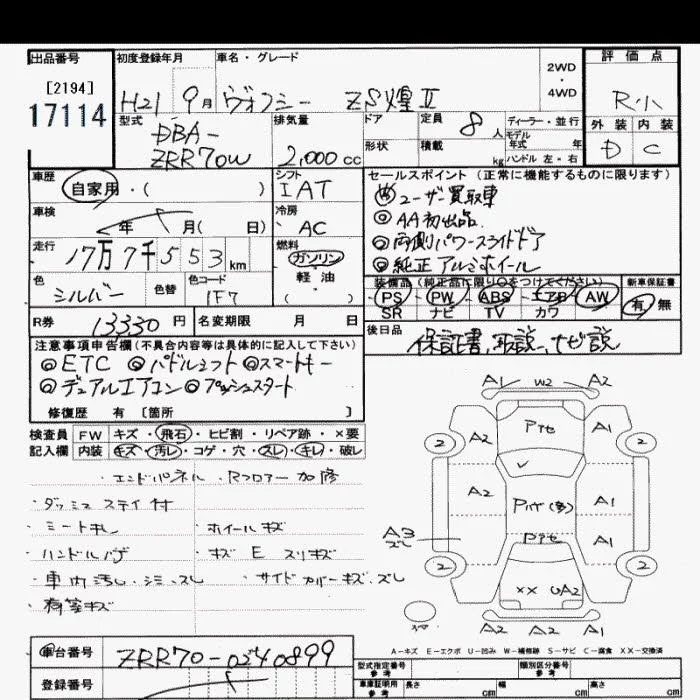 出品番号
[2194]
17114
初度登録年月
H21 9月
車名・グレード
ヴォクシー ZS煌Ⅱ
2WD
・
4WD
評価点
R小
外装 内装
D C
型式
DBA-
ZRR70W
排気量
2,000cc
ドア
形状
定員 8人
積載 kg
ディーラー・並行
モデル年式 年
ハンドル 左・右
車歴
自家用・( )
シフト
IAT
車検
年 月( 日)
冷房
AC
走行
17万7千553km
燃料
ガソリン
軽油
( )
色
シルバー
色替
色コード
1F7
R券
13330円
名変期限 月 日
セールスポイント(正常に機能するものに限ります)
ユーザー買取車
◎AA初出品
◎両側パワースライドドア
◎純正アルミホイール
装備品(純正品に限り○をつけてください)
PS・PW・ABS・エアB・AW
SR ナビ TV カワ
新車保証書
有・無
後日品
保証書、取説、ナビ説
注意事項申告欄(不具合内容等は具体的に記入して下さい)
◎ETC ◎パドルシフト ◎スマートキー
◎デュアルエアコン ◎プッシュスタート
修復歴 有 [箇所 ]
検査員記入欄
FW キズ・飛石・ヒビ割・リペア跡・×要
内装 キズ・汚レ・コゲ・穴・スレ・キレ・破レ
・エンドパネル、Rフロアー加修
・ダッシュステイ付
・シート キレ
・ホイールキズ
・ハンドルハゲ
・キズ E スリキズ
・車内汚レ・シミ・スレ
・サイドカバーキズ・スレ
・荷室キズ
A1 W2 A2
A2 A1
2 2
A2 A1
A3 スレ
A1
2 2
×× UA2
A2 A2 A1
A-キズ E-エクボ U-凹み W-補修跡 S-サビ C-腐食 XX-交換済
車台番号
ZRR70-0240899
登録番号
型式指定番号 参考
類別区分番号 参考
車庫証明用 参考
長さ cm
幅 cm
高さ cm